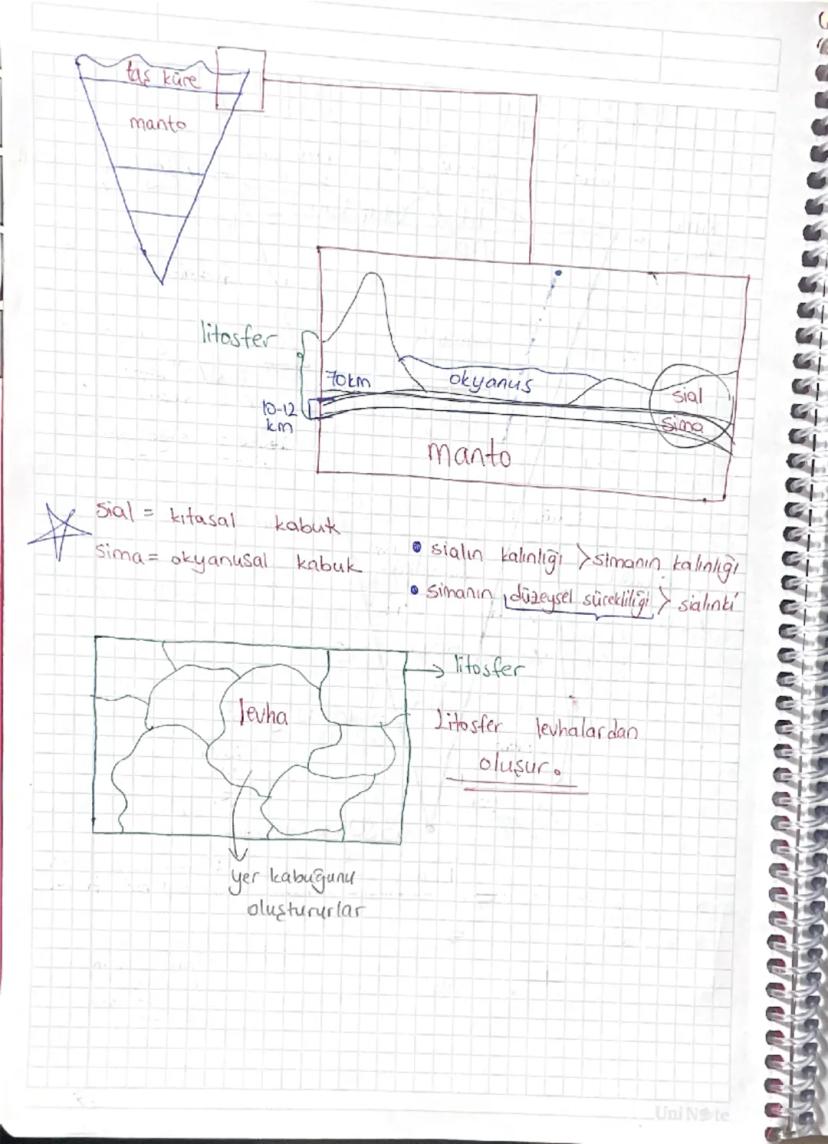 taş küre
manto
litosfer
70km
okyanus
sial
10-12
km
sima
manto
sial = kıtasal kabuk
sima= okyanusal kabuk
• sialın kalınlığı > simanın kalınlığı
• simanın düzeysel sürekliliği > sialinki
litosfer
levha
Litosfer levhalardan
oluşur.
yer kabuğunu
oluştururlar
UniNote